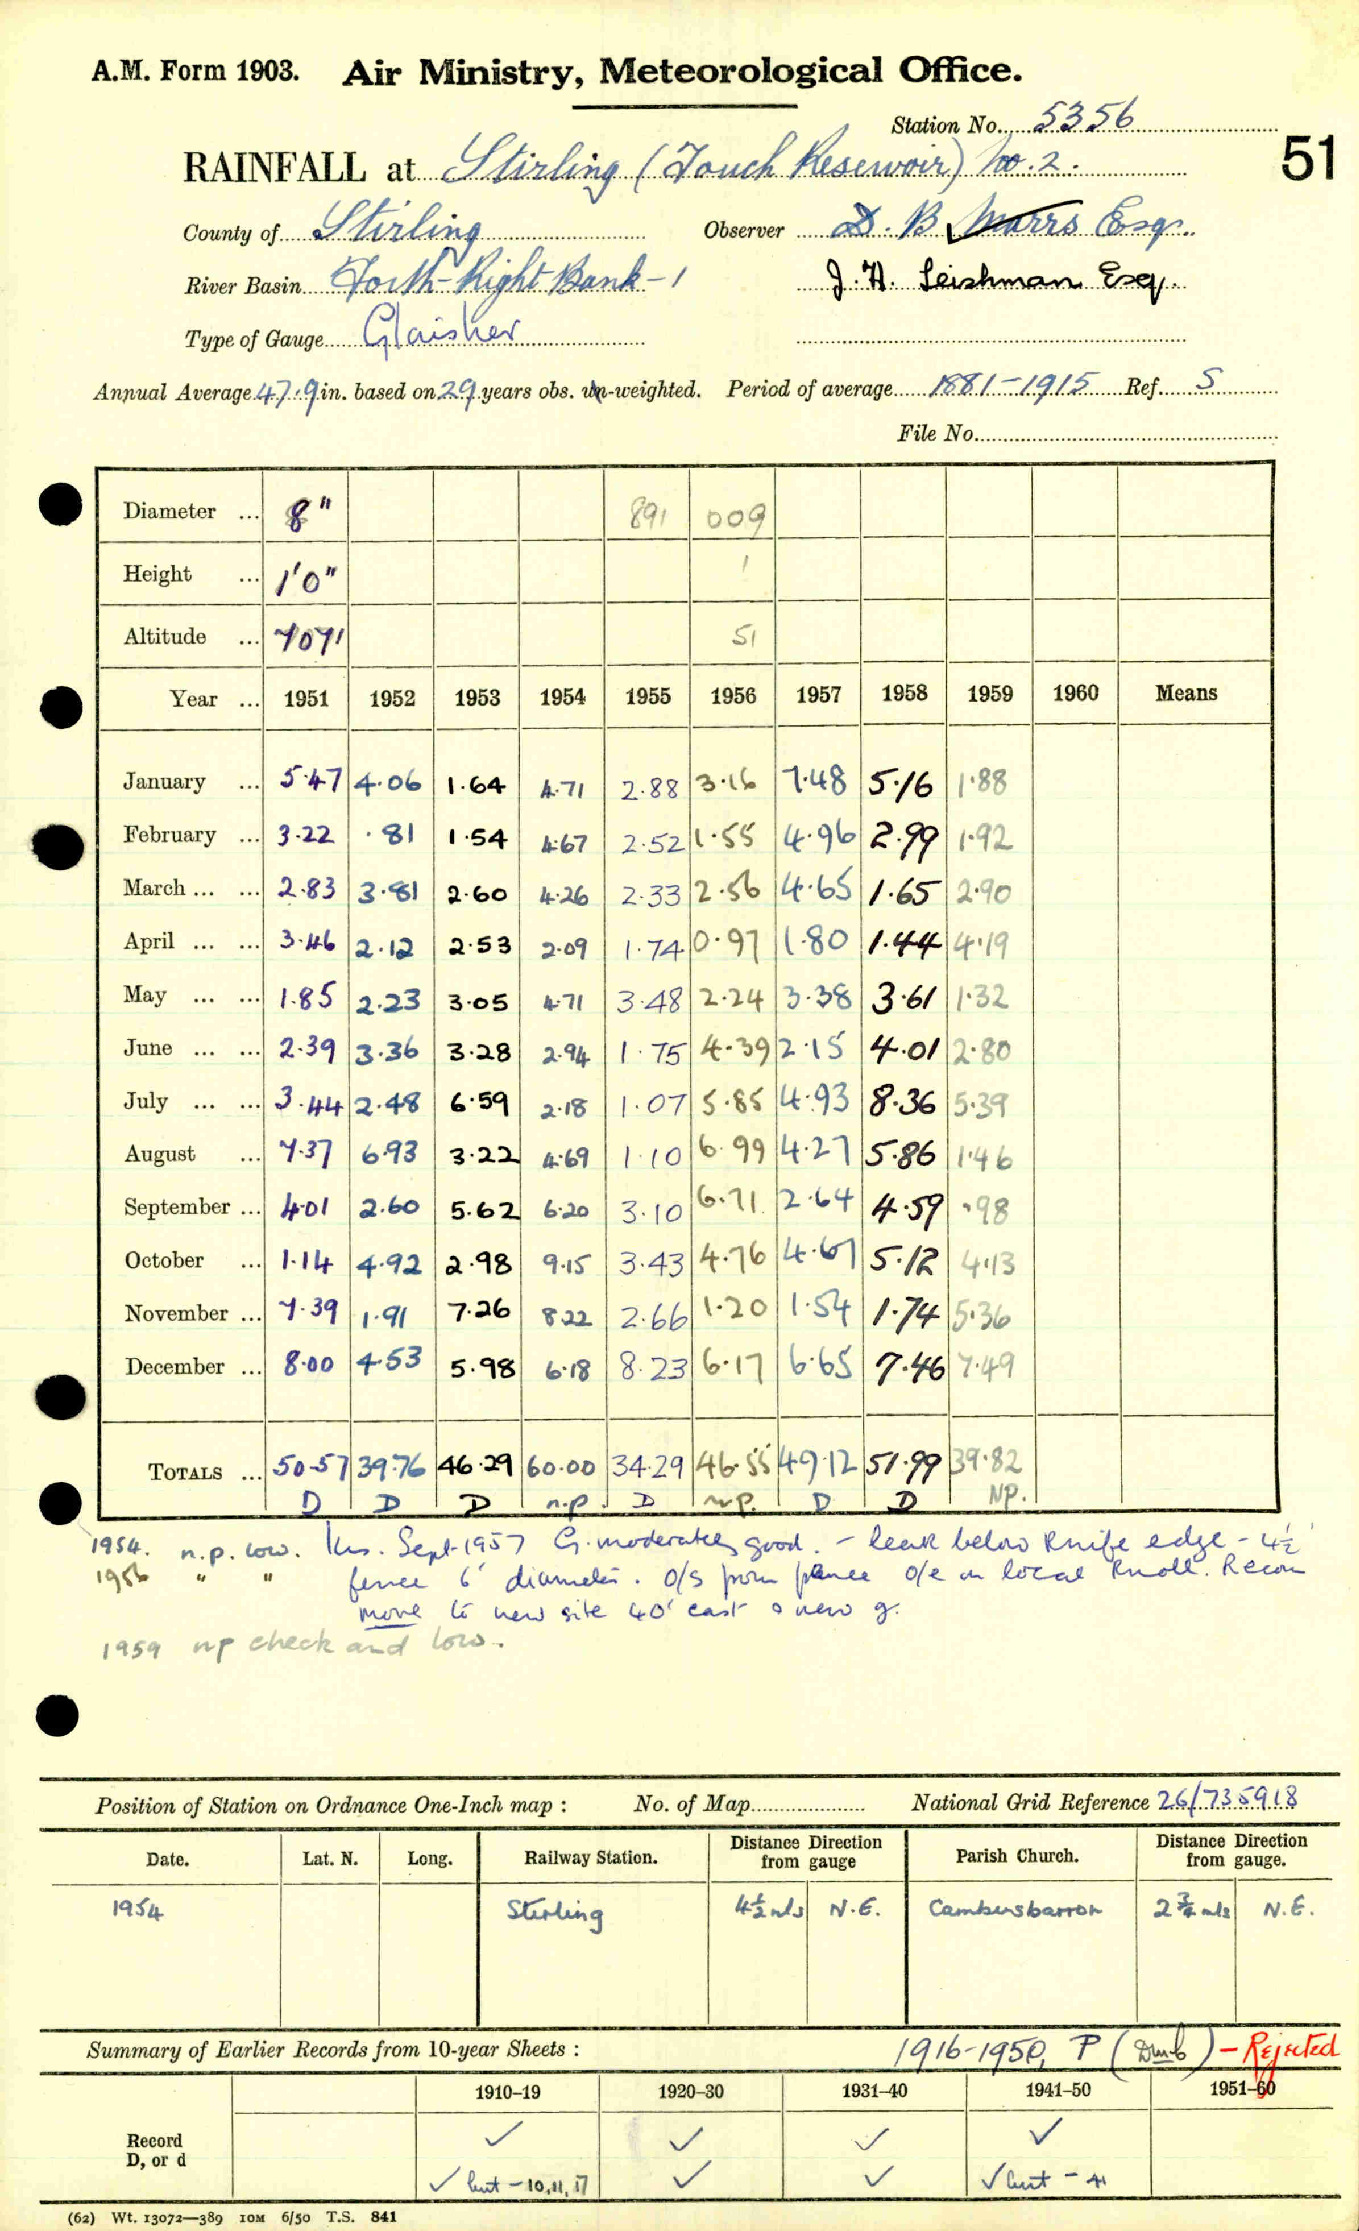 A.M. Form 1903. Air Ministry, Meteorological Office.
Station No. 5356
RAINFALL at Stirling (Touch Reservoir) No. 2.
51
County of Stirling Observer D. B. Marrs Esq.
River Basin Forth-Right Bank-1 J. H. Leishman Esq.
Type of Gauge Glaisher
Annual Average 47.9 in. based on 29 years obs. un-weighted. Period of average 1881-1915 Ref. S
File No.
Diameter ... 8" 891 009
Height ... 1'0" 1
Altitude ... 707' 51
Year ... 1951 1952 1953 1954 1955 1956 1957 1958 1959 1960 Means
January ... 5.47 4.06 1.64 4.71 2.88 3.16 7.48 5.16 1.88
February ... 3.22 .81 1.54 4.67 2.52 1.55 4.96 2.99 1.92
March ... ... 2.83 3.81 2.60 4.26 2.33 2.56 4.65 1.65 2.90
April ... ... 3.46 2.12 2.53 2.09 1.74 0.97 1.80 1.44 4.19
May ... ... 1.85 2.23 3.05 4.71 3.48 2.24 3.38 3.61 1.32
June ... ... 2.39 3.36 3.28 2.94 1.75 4.39 2.15 4.01 2.80
July ... ... 3.44 2.48 6.59 2.18 1.07 5.85 4.93 8.36 5.39
August ... 7.37 6.93 3.22 4.69 1.10 6.99 4.27 5.86 1.46
September ... 4.01 2.60 5.62 6.20 3.10 6.71 2.64 4.59 .98
October ... 1.14 4.92 2.98 9.15 3.43 4.76 4.67 5.12 4.13
November ... 7.39 1.91 7.26 8.22 2.66 1.20 1.54 1.74 5.36
December ... 8.00 4.53 5.98 6.18 8.23 6.17 6.65 7.46 7.49
TOTALS ... 50.57 39.76 46.29 60.00 34.29 46.55 49.12 51.99 39.82
D D D n.p. D n.p. D D NP.
1954. n.p. low. Ins. Sept. 1957 G. moderately good. - leak below knife edge - 4½'
1956 " " fence 6' diameter. O/S from fence O/e on local knoll. Recom
move to new site 40' east & new g.
1959 np check and low.
Position of Station on Ordnance One-Inch map : No. of Map National Grid Reference 26/735918
Date. Lat. N. Long. Railway Station. Distance Direction from gauge Parish Church. Distance Direction from gauge.
1954 Stirling 4½ mls N.E. Cambusbarron 2¾ mls N.E.
Summary of Earlier Records from 10-year Sheets : 1916-1950, P ( ) - Rejected
1910-19 1920-30 1931-40 1941-50 1951-60
Record ✓ ✓ ✓ ✓
D, or d ✓ but - 10, 11, 17 ✓ ✓ ✓ but - 41
(62) Wt. 13072—389 10M 6/50 T.S. 841